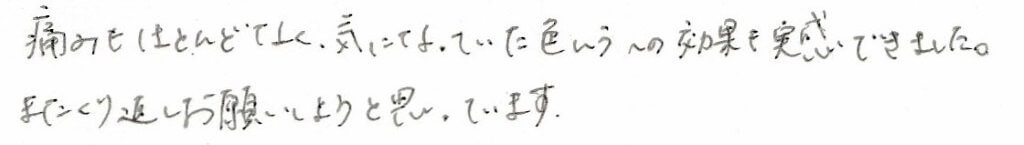 痛みもほとんどなく、気になっていた色ムラへの効果も実感できました。
またくり返しお願いしようと思っています。